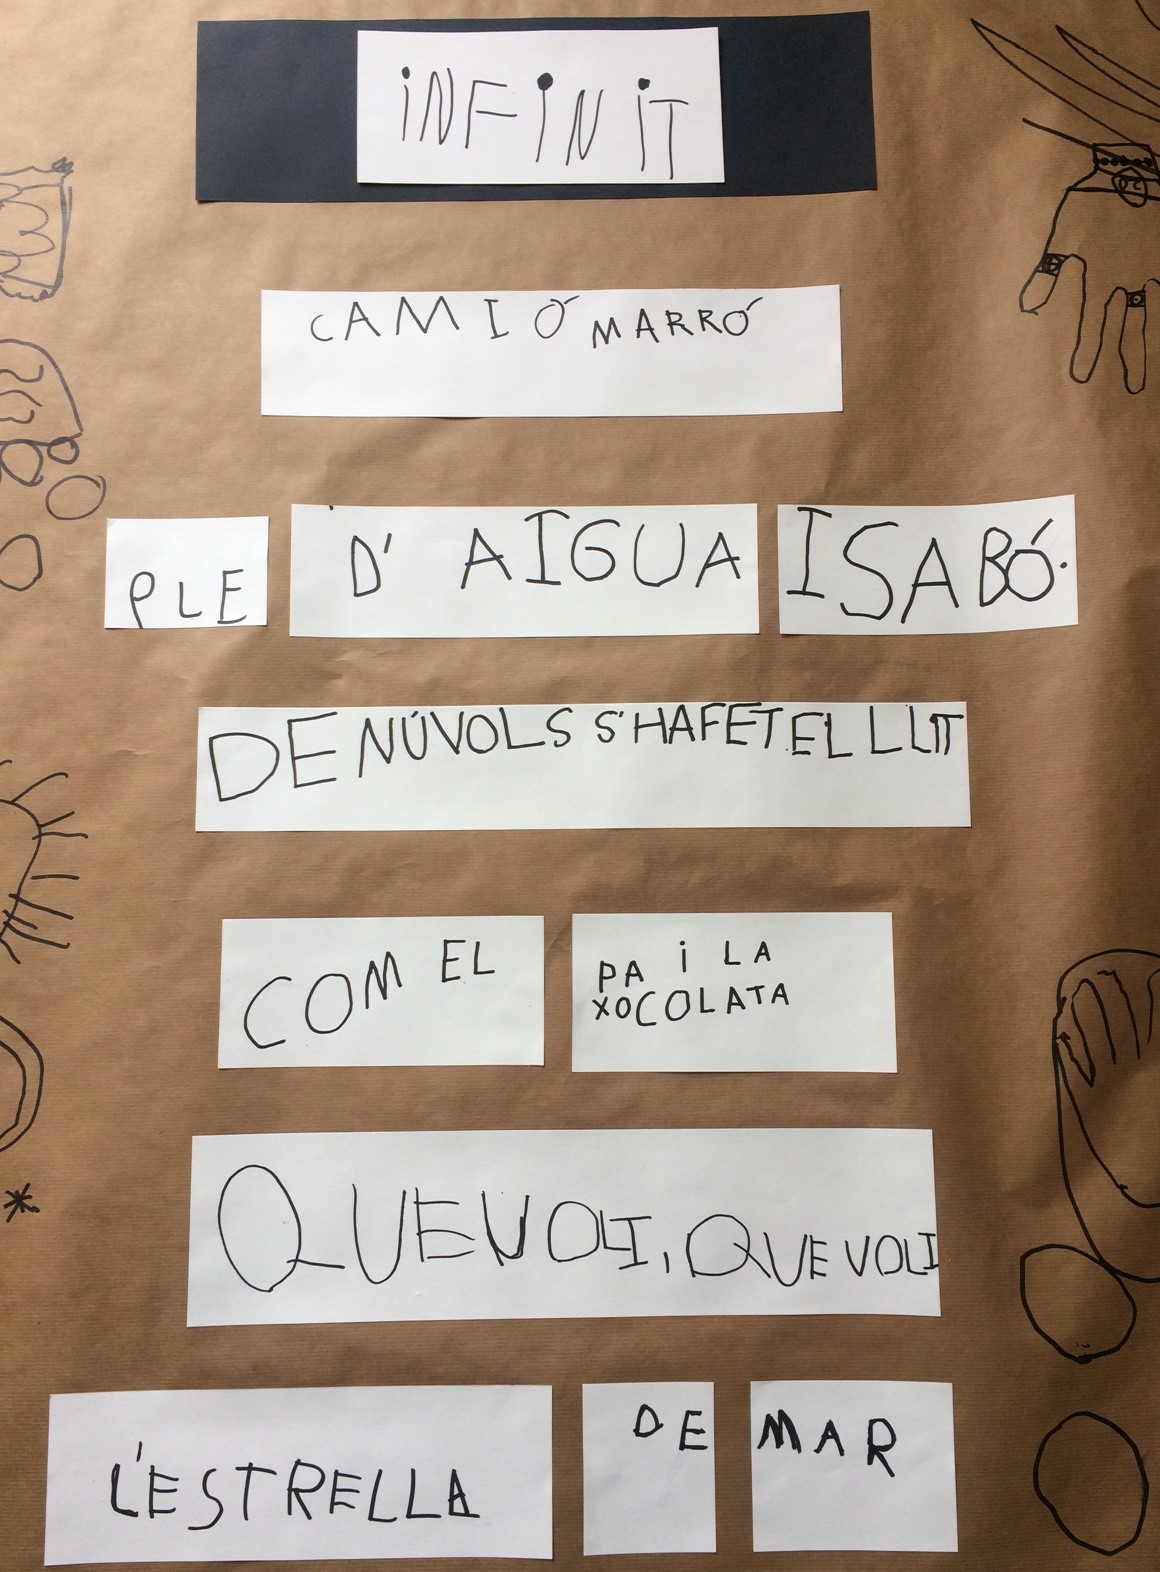 iNFiNiT
CAMIÓ MARRÓ
PLE D'AIGUA I SABÓ.
DE NÚVOLS S'HA FET EL LLIT
COM EL PA i LA
XOCOLATA
QUE VOLI, QUE VOLI
L'ESTRELLA DE MAR